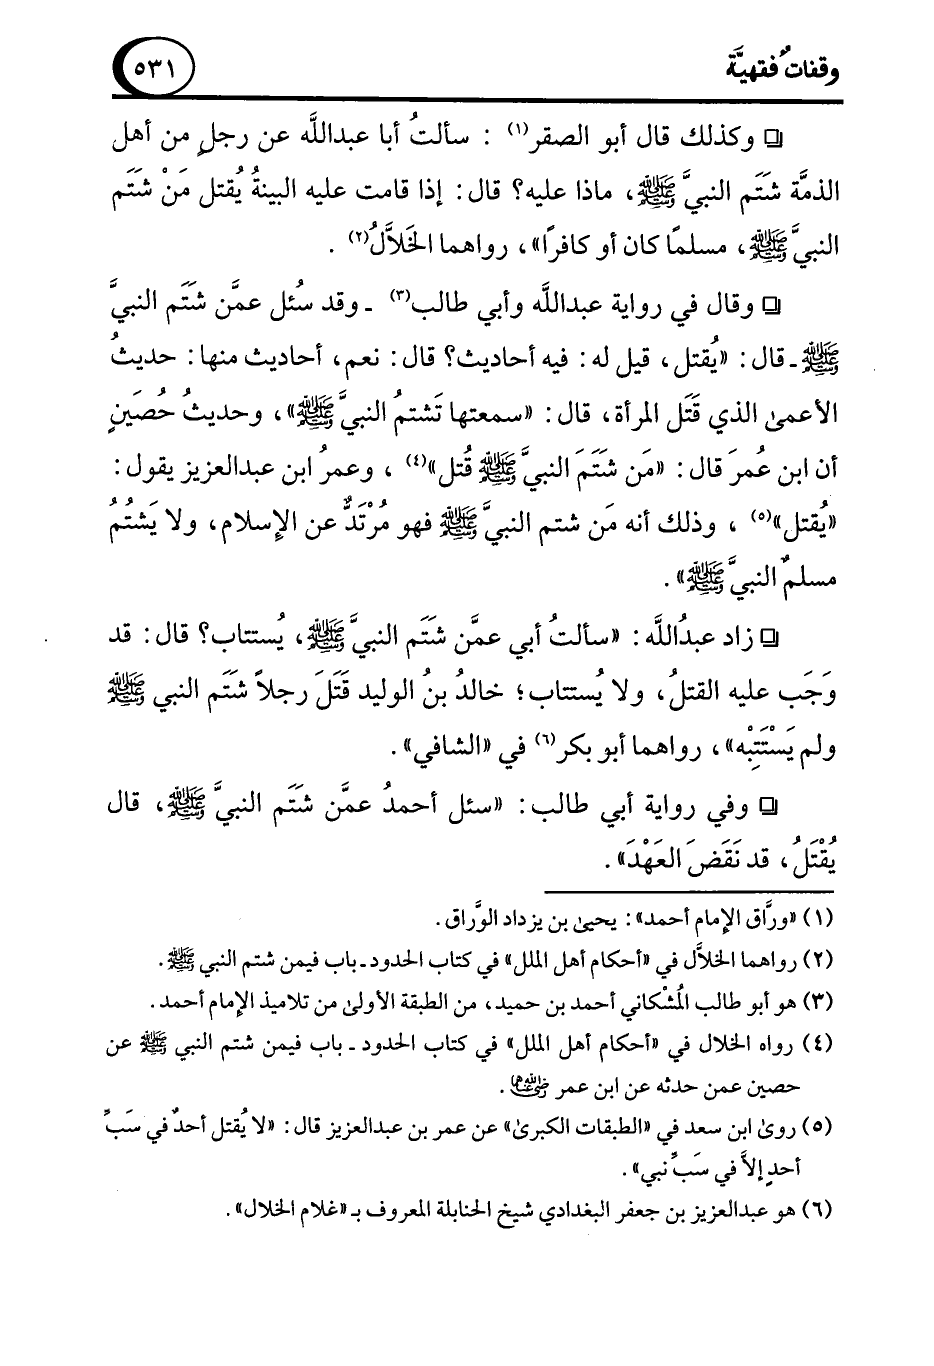 وقفاتٌ فقهيَّة
٥٣١
❏ وكذلك قال أبو الصقر(١) : سألتُ أبا عبداللَّه عن رجلٍ من أهل
الذمَّة شَتَم النبيَّ ﷺ، ماذا عليه؟ قال: إذا قامت عليه البينةُ يُقتل مَنْ شَتَم
النبيَّ ﷺ، مسلمًا كان أو كافرًا»، رواهما الخَلاَّلُ(٢) .
❏ وقال في رواية عبداللَّه وأبي طالب(٣) ـ وقد سُئل عمَّن شَتَم النبيَّ
ﷺ ـ قال: «يُقتل، قيل له: فيه أحاديث؟ قال: نعم، أحاديث منها: حديثُ
الأعمىٰ الذي قَتَل المرأة، قال: «سمعتها تَشتمُ النبيَّ ﷺ»، وحديثُ حُصَينٍ
أن ابن عُمرَ قال: «مَن شَتَمَ النبيَّ ﷺ قُتل»(٤) ، وعمرُ ابن عبدالعزيز يقول:
«يُقتل»(٥) ، وذلك أنه مَن شتم النبيَّ ﷺ فهو مُرْتَدٌّ عن الإسلام، ولا يَشتُمُ
مسلمٌ النبيَّ ﷺ» .
❏ زاد عبدُاللَّه: «سألتُ أبي عمَّن شَتَم النبيَّ ﷺ، يُستتاب؟ قال: قد
وَجَب عليه القتلُ، ولا يُستتاب؛ خالدُ بنُ الوليد قَتَلَ رجلاً شَتَم النبي ﷺ
ولم يَسْتَتِبْه»، رواهما أبو بكر(٦) في «الشافي» .
❏ وفي رواية أبي طالب: «سئل أحمدُ عمَّن شَتَم النبيَّ ﷺ، قال
يُقْتَلُ، قد نَقَضَ العَهْدَ» .
(١) «ورَّاق الإمام أحمد»: يحيىٰ بن يزداد الورَّاق .
(٢) رواهما الخلاَّل في «أحكام أهل الملل» في كتاب الحدود ـ باب فيمن شتم النبي ﷺ .
(٣) هو أبو طالب المُشْكاني أحمد بن حميد، من الطبقة الأولىٰ من تلاميذ الإمام أحمد .
(٤) رواه الخلال في «أحكام أهل الملل» في كتاب الحدود ـ باب فيمن شتم النبي ﷺ عن
حصين عمن حدثه عن ابن عمر رضي الله عنهما .
(٥) روىٰ ابن سعد في «الطبقات الكبرىٰ» عن عمر بن عبدالعزيز قال: «لا يُقتل أحدٌ في سَبِّ
أحدٍ إلاَّ في سَبِّ نبي» .
(٦) هو عبدالعزيز بن جعفر البغدادي شيخ الحنابلة المعروف بـ «غلام الخلال» .